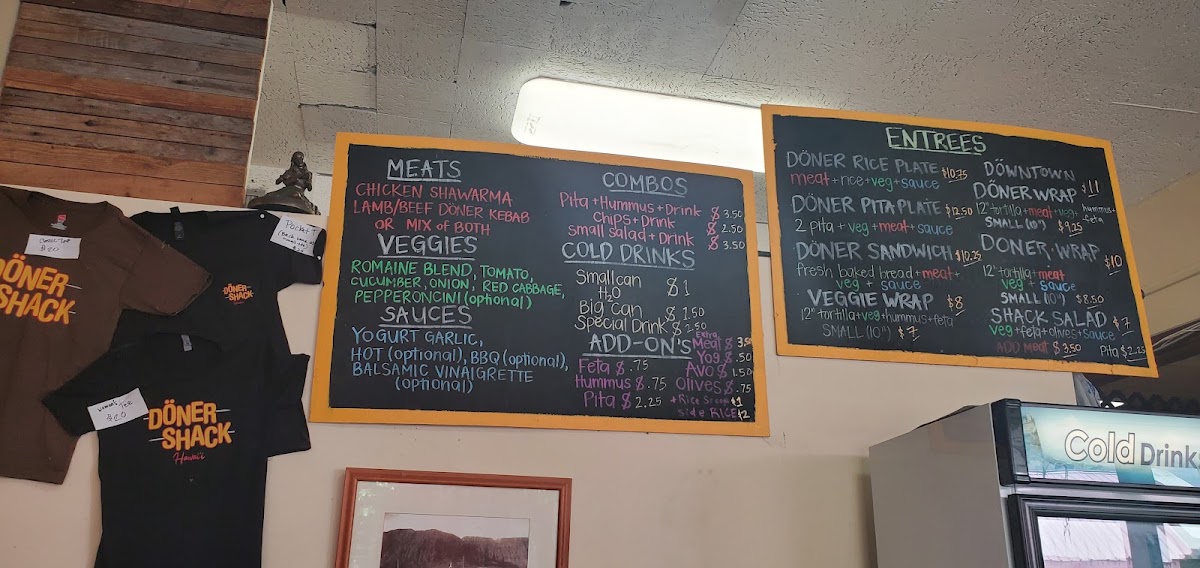 DÖNER
SHACK
$20
Pocket T
DÖNER
SHACK
Women's Tee
$20
DÖNER
SHACK
Hawai'i
MEATS
CHICKEN SHAWARMA
LAMB/BEEF DÖNER KEBAB
OR MIX OF BOTH
VEGGIES
ROMAINE BLEND, TOMATO,
CUCUMBER, ONION, RED CABBAGE,
PEPPERONCINI (optional)
SAUCES
YOGURT GARLIC,
HOT (optional), BBQ (optional),
BALSAMIC VINAIGRETTE
(optional)
COMBOS
Pita + Hummus + Drink $3.50
Chips + Drink $2.50
Small salad + Drink $3.50
COLD DRINKS
Small can $1
H2O
Big can $1.50
Special Drink $2.50
ADD-ON'S
Feta $.75
Hummus $.75
Pita $2.25
Extra
Meat $3.50
Yog $.50
Avo $1.50
Olives $.75
+ Rice Scoop $1
side RICE $2
ENTREES
DÖNER RICE PLATE $10.75
meat + rice + veg + sauce
DÖNER PITA PLATE $12.50
2 pita + veg + meat + sauce
DÖNER SANDWICH $10.25
fresh baked bread + meat +
veg + sauce
VEGGIE WRAP $8
12" tortilla + veg + hummus + feta
SMALL (10") $7
DÖWNTOWN
DÖNER WRAP $11
12" tortilla + meat + veg + hummus + feta
SMALL (10") $9.25
DÖNER WRAP $10
12" tortilla + meat
veg + sauce
SMALL (10") $8.50
SHACK SALAD $7
veg + feta + olives + sauce
ADD meat $3.50 Pita $2.25
Cold Drinks